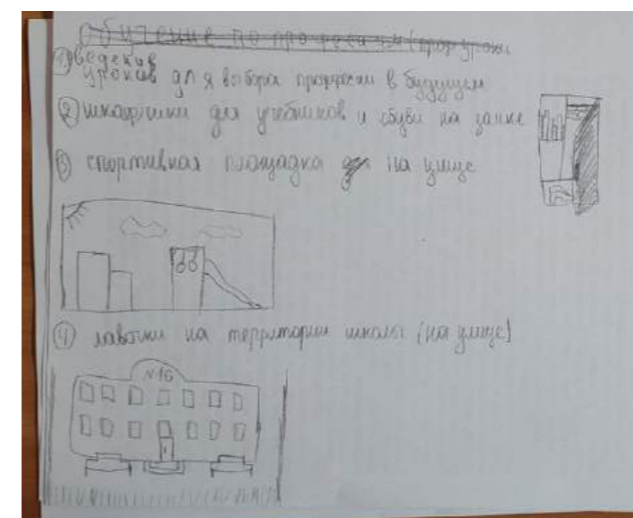 Обучение по професиям (проф уроки
① введение
уроков для выбора профессии в будущем
② шкафчики для учебников и обуви на замке
③ спортивная площадка на улице
④ лавочки на территории школы (на улице)
№16